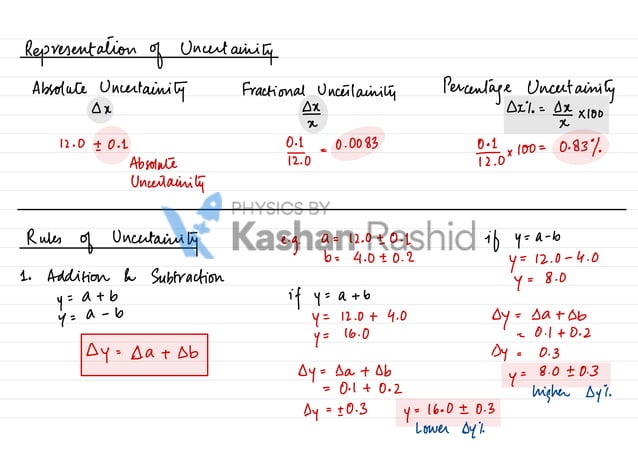 Representation of Uncertainity
Absolute Uncertainity
Δx
12.0 ± 0.1
Absolute
Uncertainity
Fractional Uncertainity
Δx/x
0.1/12.0 = 0.0083
Percentage Uncertainity
Δx% = Δx/x ×100
0.1/12.0 × 100 = 0.83%
PHYSICS BY
Kashan Rashid
Rules of Uncertainity
1. Addition & Subtraction
y = a + b
y = a - b
Δy = Δa + Δb
e.g. a = 12.0 ± 0.1
b = 4.0 ± 0.2
if y = a + b
y = 12.0 + 4.0
y = 16.0
Δy = Δa + Δb
= 0.1 + 0.2
Δy = ±0.3
y = 16.0 ± 0.3
Lower Δy%
if y = a - b
y = 12.0 - 4.0
y = 8.0
Δy = Δa + Δb
= 0.1 + 0.2
Δy = 0.3
y = 8.0 ± 0.3
higher Δy%